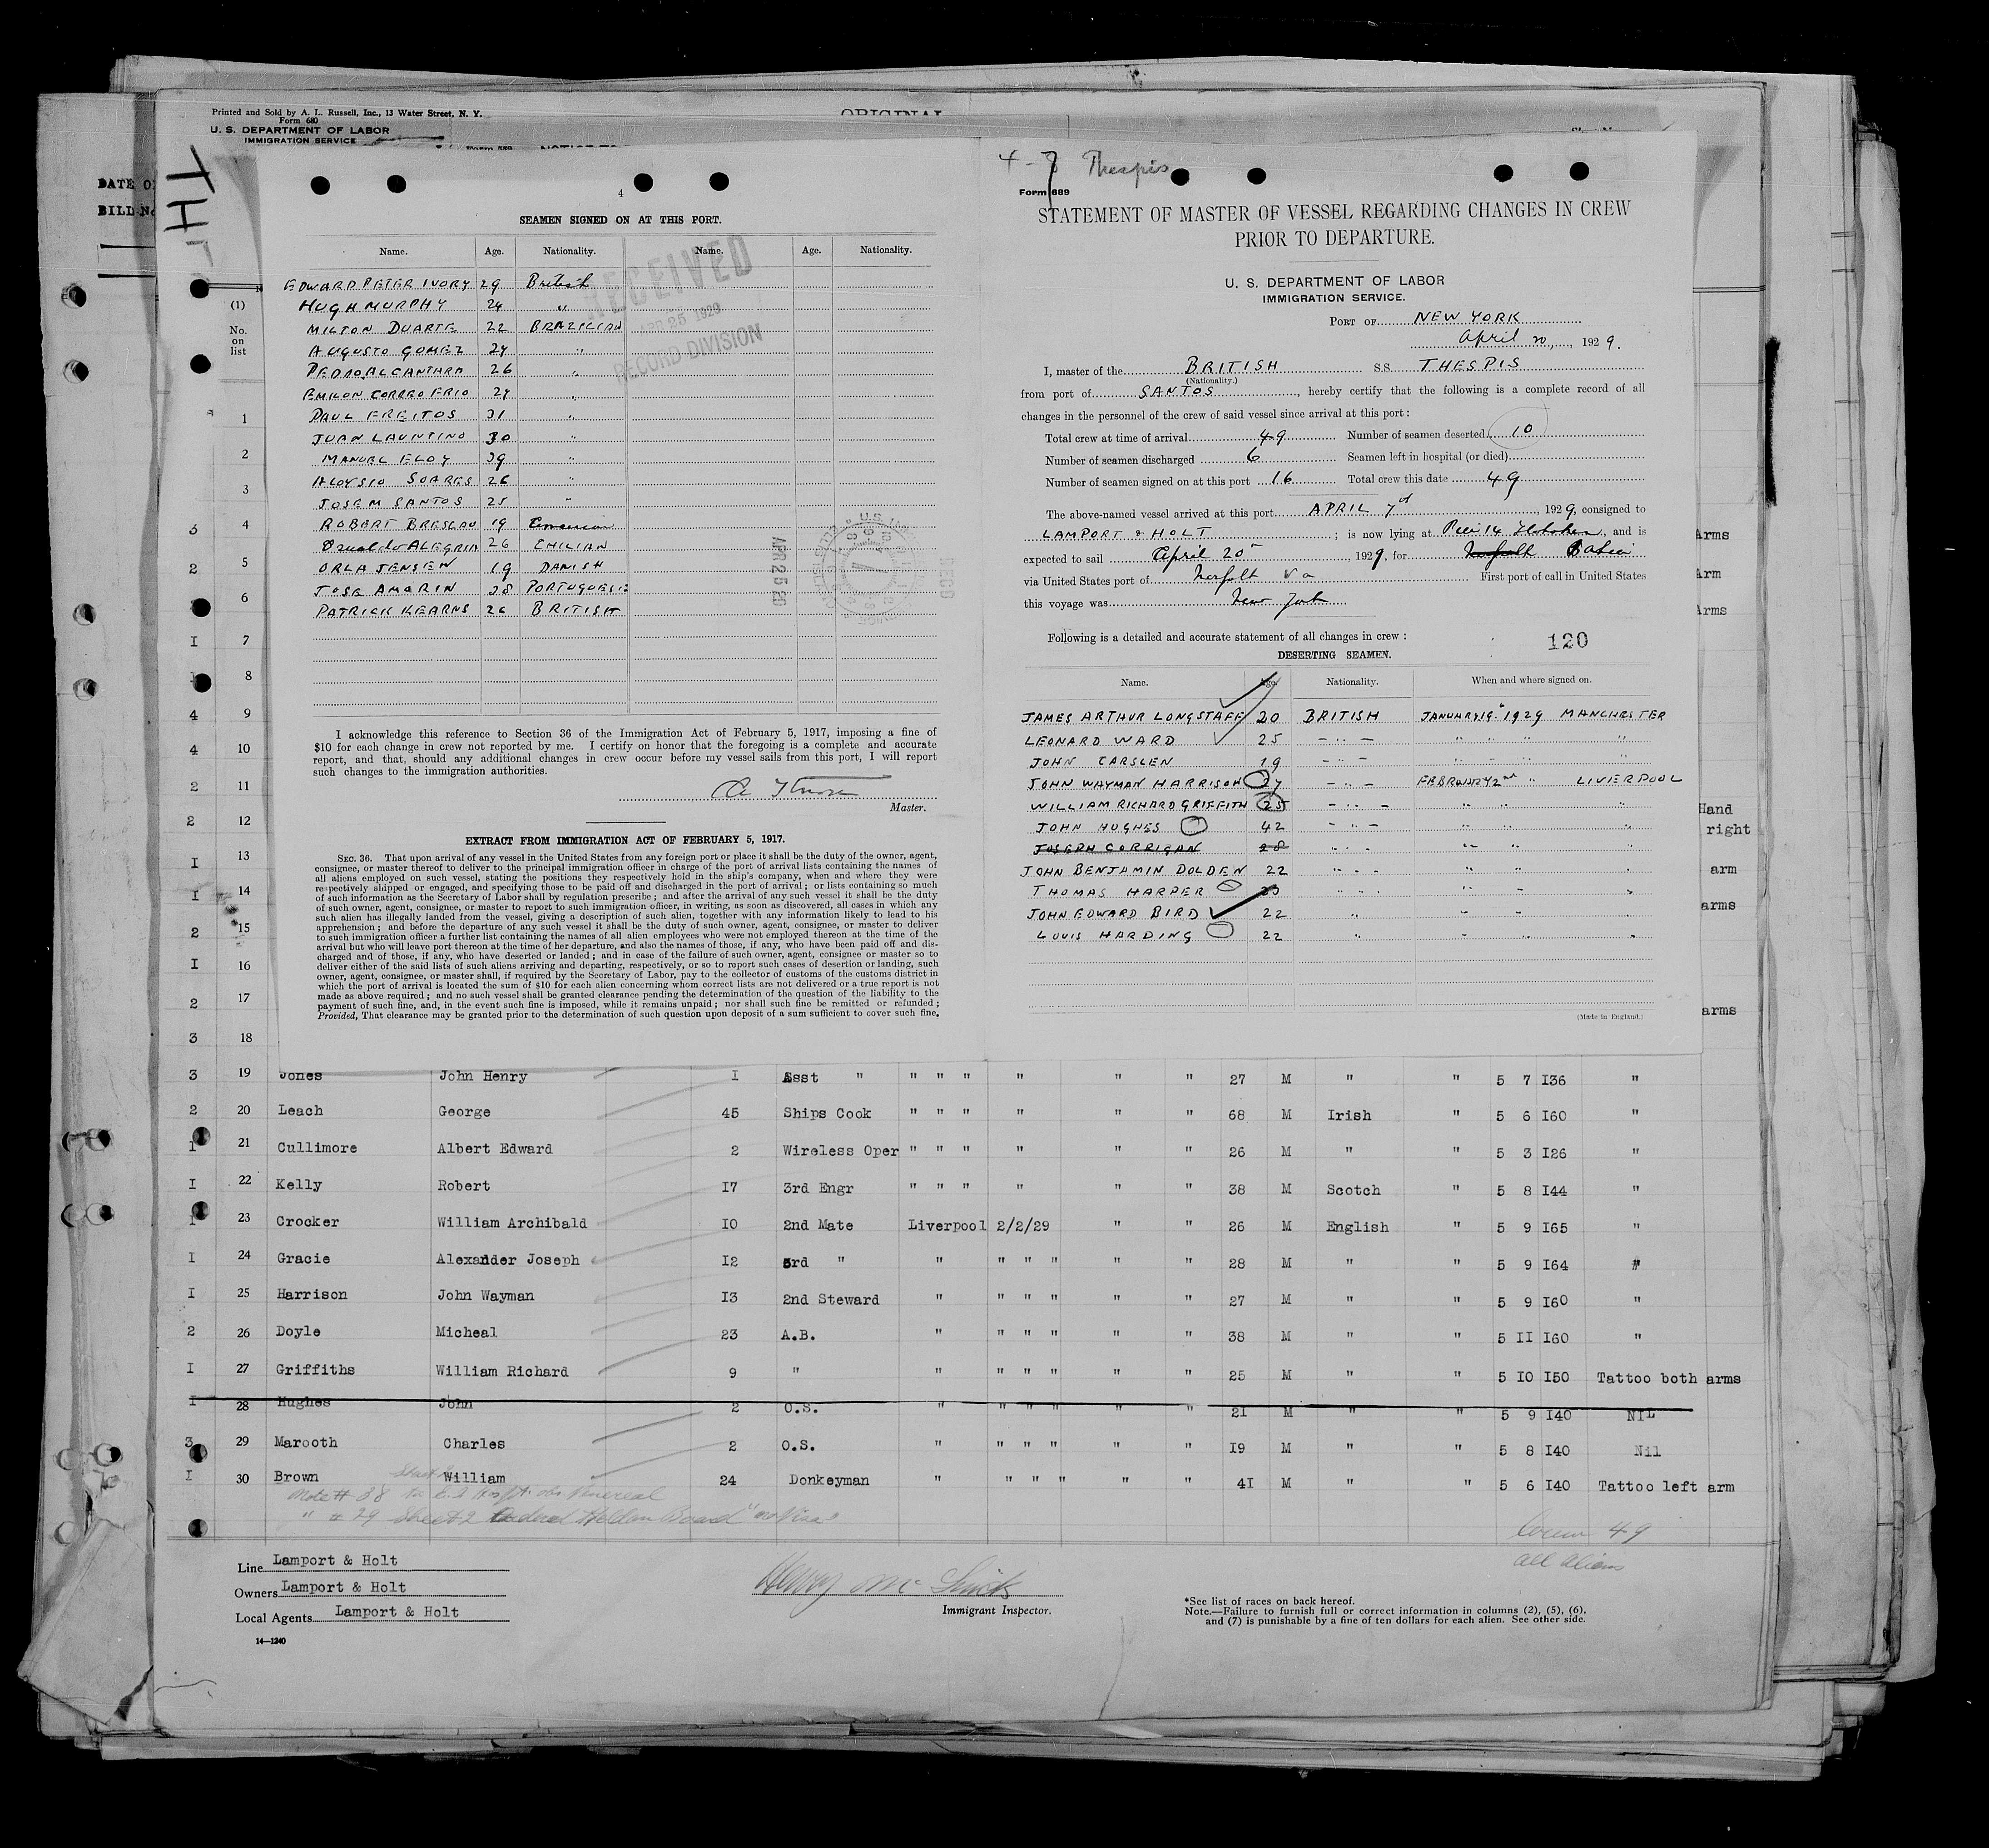 Printed and Sold by A. L. Russell, Inc., 13 Water Street, N. Y.
Form 680
U. S. DEPARTMENT OF LABOR
IMMIGRATION SERVICE
ORIGINAL
DATE
BILL No
(1)
No.
on
list
4
SEAMEN SIGNED ON AT THIS PORT.
Name. Age. Nationality. Name. Age. Nationality.
EDWARD PETER IVORY 29 British
HUGH MURPHY 24 "
MILTON DUARTE 22 BRAZILIAN
AUGUSTO GOMEZ 24 "
PEDRO ALCANTARA 26 "
EMILON CORREO FRIO 24 "
PAUL FREITOS 31 "
JUAN LAUNTINO 30 "
MANUEL ELOY 39 "
ALOYSIO SOARES 26 "
JOSE M SANTOS 25 "
ROBERT BRESLAU 19
Osualdo ALEGRIA 26 CHILIAN
ORLA JENSEN 19 DANISH
JOSE AMARIN 38 PORTUGUESE
PATRICK KEARNS 26 BRITISH
RECEIVED
APR 25 1929
RECORD DIVISION
APR 25 29
RECD
I acknowledge this reference to Section 36 of the Immigration Act of February 5, 1917, imposing a fine of
$10 for each change in crew not reported by me. I certify on honor that the foregoing is a complete and accurate
report, and that, should any additional changes in crew occur before my vessel sails from this port, I will report
such changes to the immigration authorities.
Master.
EXTRACT FROM IMMIGRATION ACT OF FEBRUARY 5, 1917.
SEC. 36. That upon arrival of any vessel in the United States from any foreign port or place it shall be the duty of the owner, agent,
consignee, or master thereof to deliver to the principal immigration officer in charge of the port of arrival lists containing the names of
all aliens employed on such vessel, stating the positions they respectively hold in the ship's company, when and where they were
respectively shipped or engaged, and specifying those to be paid off and discharged in the port of arrival; or lists containing so much
of such information as the Secretary of Labor shall by regulation prescribe; and after the arrival of any such vessel it shall be the duty
of such owner, agent, consignee, or master to report to such immigration officer, in writing, as soon as discovered, all cases in which any
such alien has illegally landed from the vessel, giving a description of such alien, together with any information likely to lead to his
apprehension; and before the departure of any such vessel it shall be the duty of such owner, agent, consignee, or master to deliver
to such immigration officer a further list containing the names of all alien employees who were not employed thereon at the time of the
arrival but who will leave port thereon at the time of her departure, and also the names of those, if any, who have been paid off and dis-
charged and of those, if any, who have deserted or landed; and in case of the failure of such owner, agent, consignee or master so to
deliver either of the said lists of such aliens arriving and departing, respectively, or so to report such cases of desertion or landing, such
owner, agent, consignee, or master shall, if required by the Secretary of Labor, pay to the collector of customs of the customs district in
which the port of arrival is located the sum of $10 for each alien concerning whom correct lists are not delivered or a true report is not
made as above required; and no such vessel shall be granted clearance pending the determination of the question of the liability to the
payment of such fine, and, in the event such fine is imposed, while it remains unpaid; nor shall such fine be remitted or refunded;
Provided, That clearance may be granted prior to the determination of such question upon deposit of a sum sufficient to cover such fine.
4-7 Thespis
Form 689
STATEMENT OF MASTER OF VESSEL REGARDING CHANGES IN CREW
PRIOR TO DEPARTURE.
U. S. DEPARTMENT OF LABOR
IMMIGRATION SERVICE.
PORT OF NEW YORK
April 20, 1929.
I, master of the BRITISH S.S. THESPIS
(Nationality.)
from port of SANTOS, hereby certify that the following is a complete record of all
changes in the personnel of the crew of said vessel since arrival at this port:
Total crew at time of arrival 49 Number of seamen deserted 10
Number of seamen discharged 6 Seamen left in hospital (or died)
Number of seamen signed on at this port 16 Total crew this date 49
The above-named vessel arrived at this port APRIL 7th, 1929, consigned to
LAMPORT & HOLT; is now lying at Pier 14 Hoboken, and is
expected to sail April 20, 1929, for Norfolk Bahia
via United States port of Norfolk Va First port of call in United States
this voyage was New York
Following is a detailed and accurate statement of all changes in crew:
120
DESERTING SEAMEN.
Name. Age. Nationality. When and where signed on.
JAMES ARTHUR LONGSTAFF 20 BRITISH JANUARY 19th 1929 MANCHESTER
LEONARD WARD 25 - " - " " " "
JOHN CARSLEN 19 - " - " " " "
JOHN WAYMAN HARRISON 27 - " - FEBRUARY 2nd " LIVERPOOL
WILLIAM RICHARD GRIFFITH 25 - " - " " "
JOHN HUGHES 42 - " - " " "
JOSEPH CORRIGAN 28 " " " "
JOHN BENJAMIN DOLDEN 22 " " " "
THOMAS HARPER 23 " " " "
JOHN EDWARD BIRD 22 " " " "
LOUIS HARDING 22 " " " "
(Made in England.)
1
2
3
3 4 Arms
2 5 Arm
6 Arms
I 7
8
4 9
4 10
2 11 Hand
2 12 right
I 13 arm
I 14 arms
2 15
I 16
2 17 arms
3 18
3 19 Jones John Henry 1 Asst " " " " " " " 27 M " " 5 7 I36 "
2 20 Leach George 45 Ships Cook " " " " " " 68 M Irish " 5 6 I60 "
1 21 Cullimore Albert Edward 2 Wireless Oper " " " " " " 26 M " " 5 3 I26 "
I 22 Kelly Robert I7 3rd Engr " " " " " " 38 M Scotch " 5 8 I44 "
1 23 Crocker William Archibald I0 2nd Mate Liverpool 2/2/29 " " 26 M English " 5 9 I65 "
I 24 Gracie Alexander Joseph I2 3rd " " " " " " " 28 M " " 5 9 I64 "
I 25 Harrison John Wayman I3 2nd Steward " " " " " " 27 M " " 5 9 I60 "
2 26 Doyle Micheal 23 A.B. " " " " " " 38 M " " 5 II I60 "
I 27 Griffiths William Richard 9 " " " " " " " 25 M " " 5 I0 I50 Tattoo both arms
I 28 Hughes John 2 O.S. " " " " " " 21 M " " 5 9 I40 NIL
3 29 Marooth Charles 2 O.S. " " " " " " I9 M " " 5 8 I40 Nil
I 30 Brown William 24 Donkeyman " " " " " " 4I M " " 5 6 I40 Tattoo left arm
Note # 38 Venereal
" # 29 Sheet 2 Board "no Visa"
49
all aliens
Line Lamport & Holt
Owners Lamport & Holt
Local Agents Lamport & Holt
14—1240
Immigrant Inspector.
*See list of races on back hereof.
Note.—Failure to furnish full or correct information in columns (2), (5), (6),
and (7) is punishable by a fine of ten dollars for each alien. See other side.